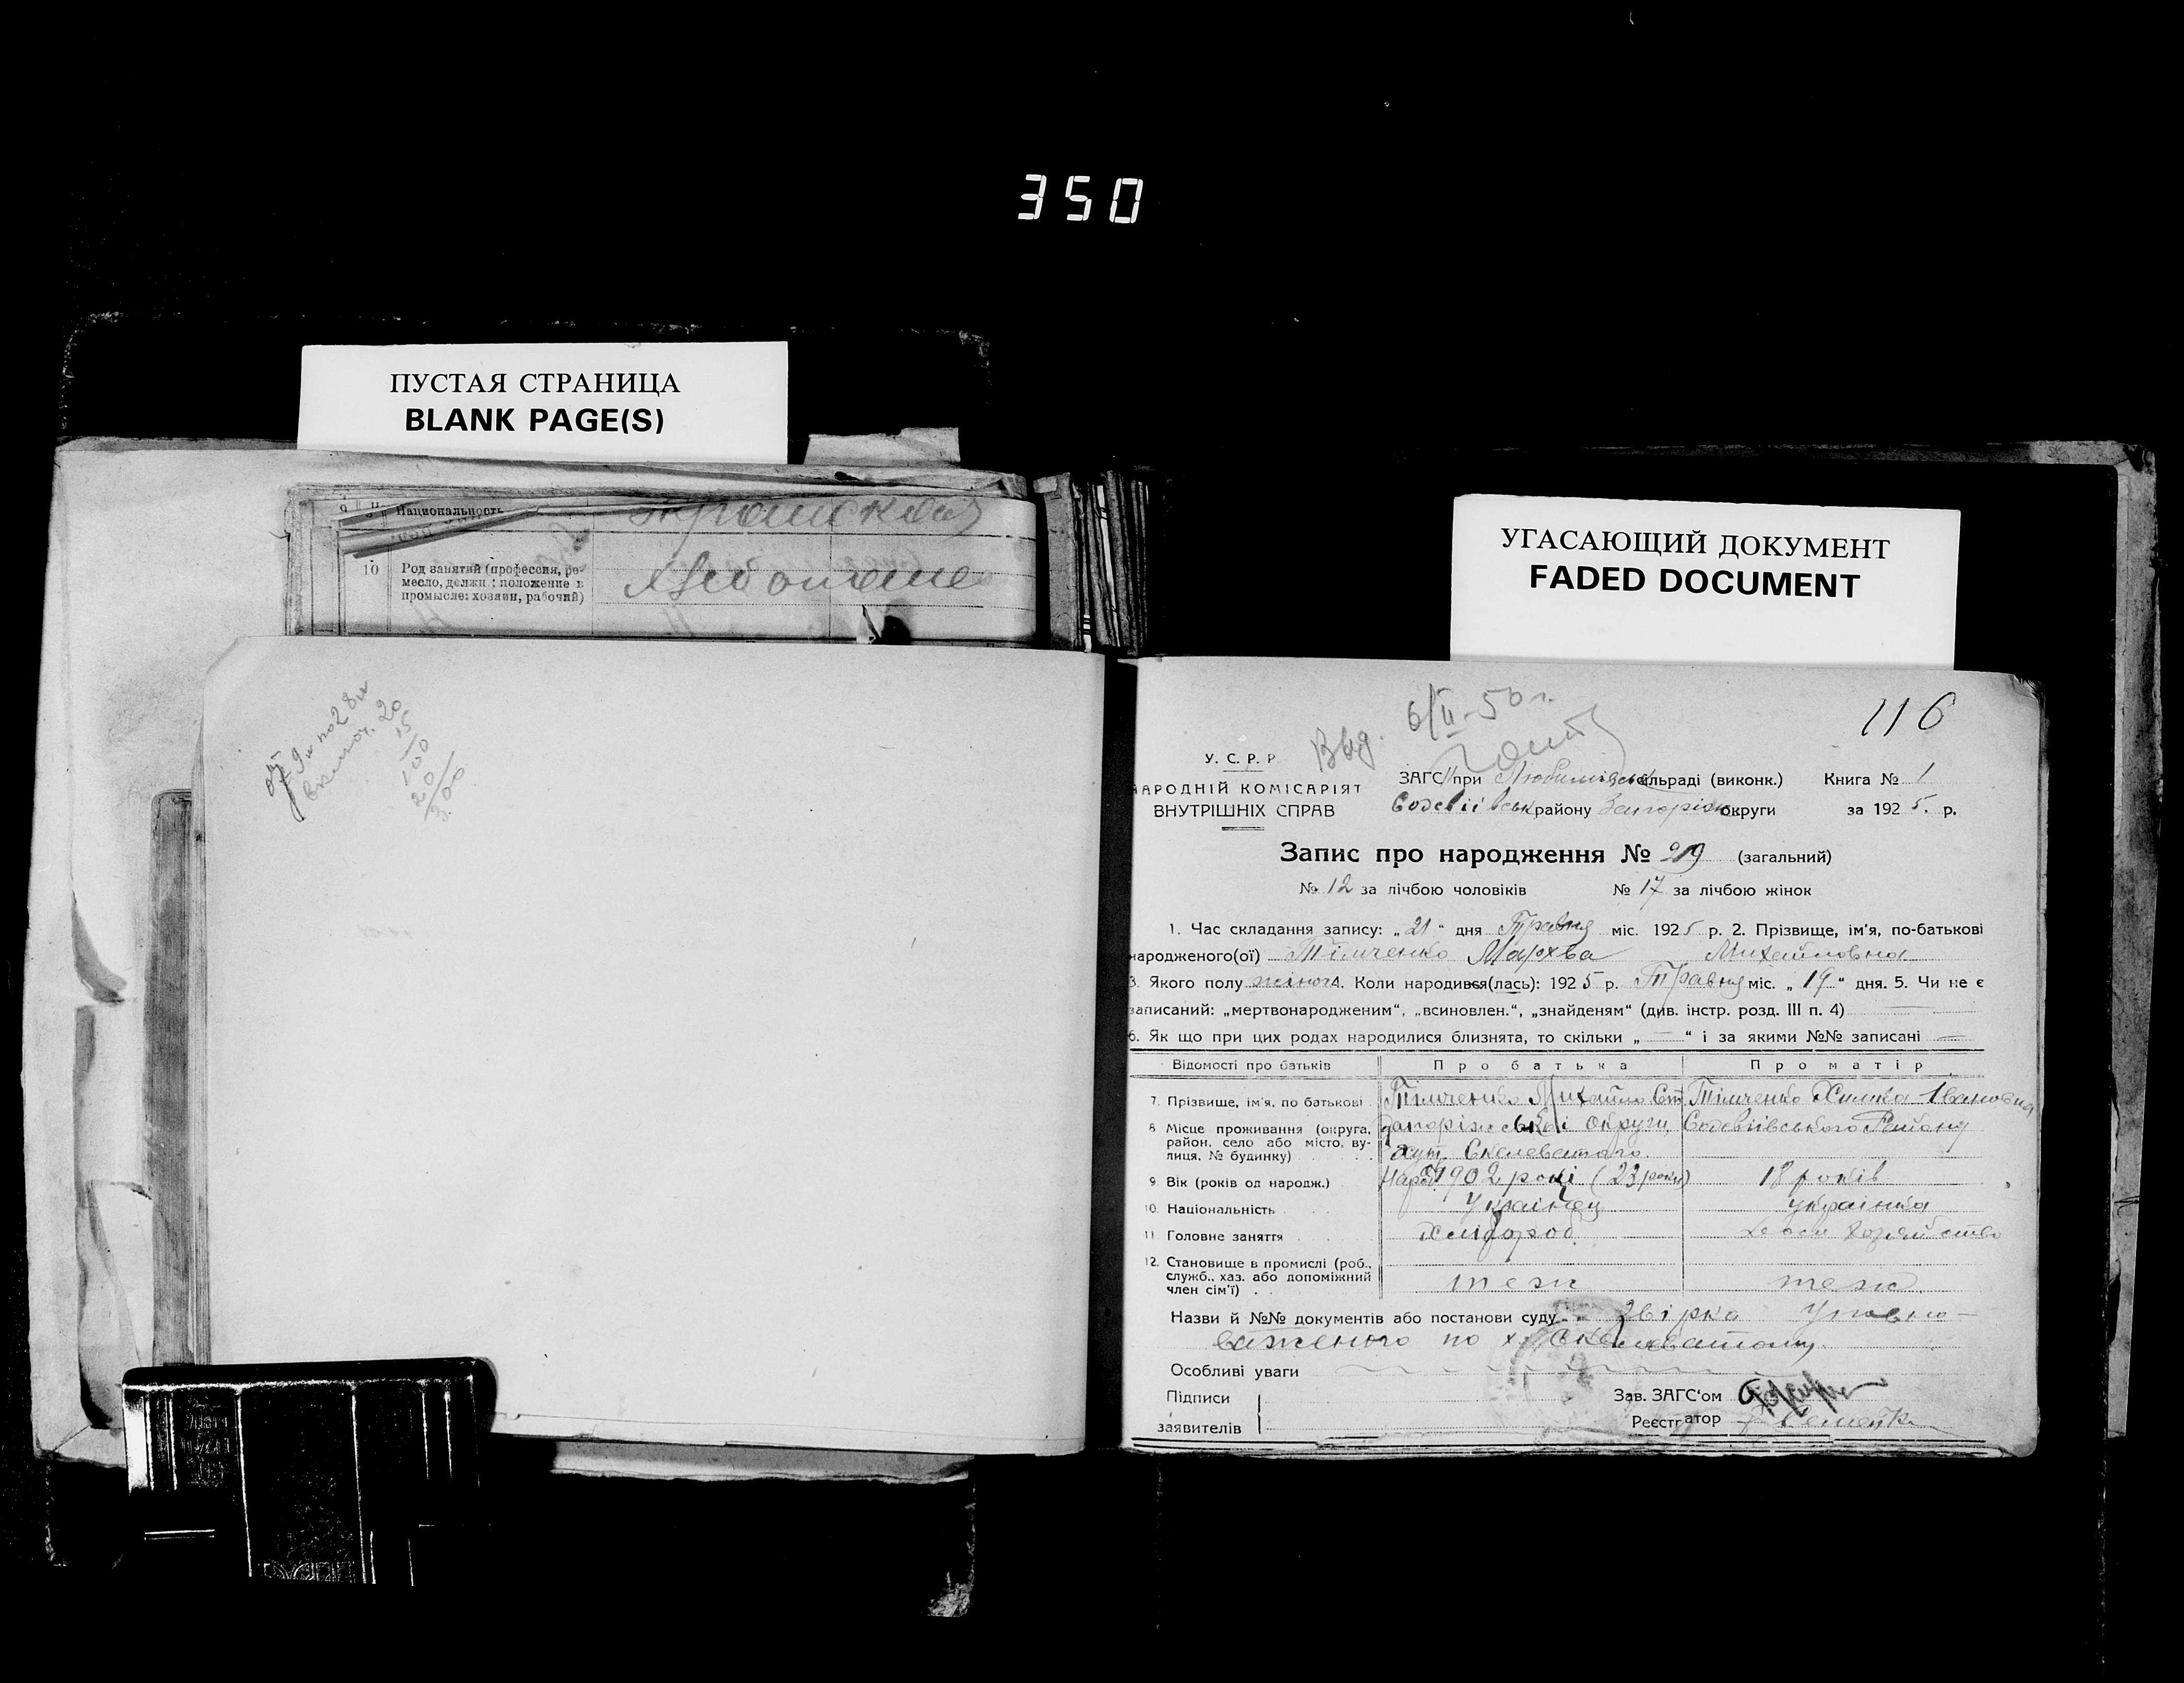 350
ПУСТАЯ СТРАНИЦА
BLANK PAGE(S)
Национальность
10 Род занятий (профессия, ре-
месло, должн.: положение в
промысле: хозяин, рабочий)
УГАСАЮЩИЙ ДОКУМЕНТ
FADED DOCUMENT
20
15
100
20
300
116
Выд. 6/II-50 г.
У. С. Р. Р
НАРОДНІЙ КОМІСАРІЯТ
ВНУТРІШНІХ СПРАВ
ЗАГС при Любимівськ сельраді (виконк.) Книга № 1
району Запоріжк округи за 1925. р.
Запис про народження № 29 (загальний)
№ 12 за лічбою чоловіків № 17 за лічбою жінок
1. Час складання запису: „21“ дня Травня міс. 1925 р. 2. Прізвище, ім'я, по-батькові
народженого(ої) Тімченко Мархва Михайловна
3. Якого полу жіноч 4. Коли народився(лась): 1925 р. Травня міс. „19“ дня. 5. Чи не є
записаний: „мертвонародженим“, „всиновлен.“, „знайденям“ (див. інстр. розд. III п. 4)
6. Як що при цих родах народилися близнята, то скільки „—“ і за якими №№ записані —
Відомості про батьків Про батька Про матір
7. Прізвище, ім'я, по батькові Тімченко Михайло Ст. Тімченко Химка Івановна
8 Місце проживання (округа, Запоріжської Округи, Району
район, село або місто, ву-
лиця, № будинку) Хут. Скелеватого
9. Вік (років од народж.) Народ 1902 році (23 роки) 18 років
10. Національність Українец Українка
11. Головне заняття хлібороб. хозяйство
12. Становище в промислі (роб.,
служб., хаз. або допоміжний
член сім'ї) теж теж
Назви й №№ документів або постанови суду Звірка Упов­но-
важеного по х. Скелеватому
Особливі уваги
Підписи
заявителів
Зав. ЗАГС'ом
Реєстратор